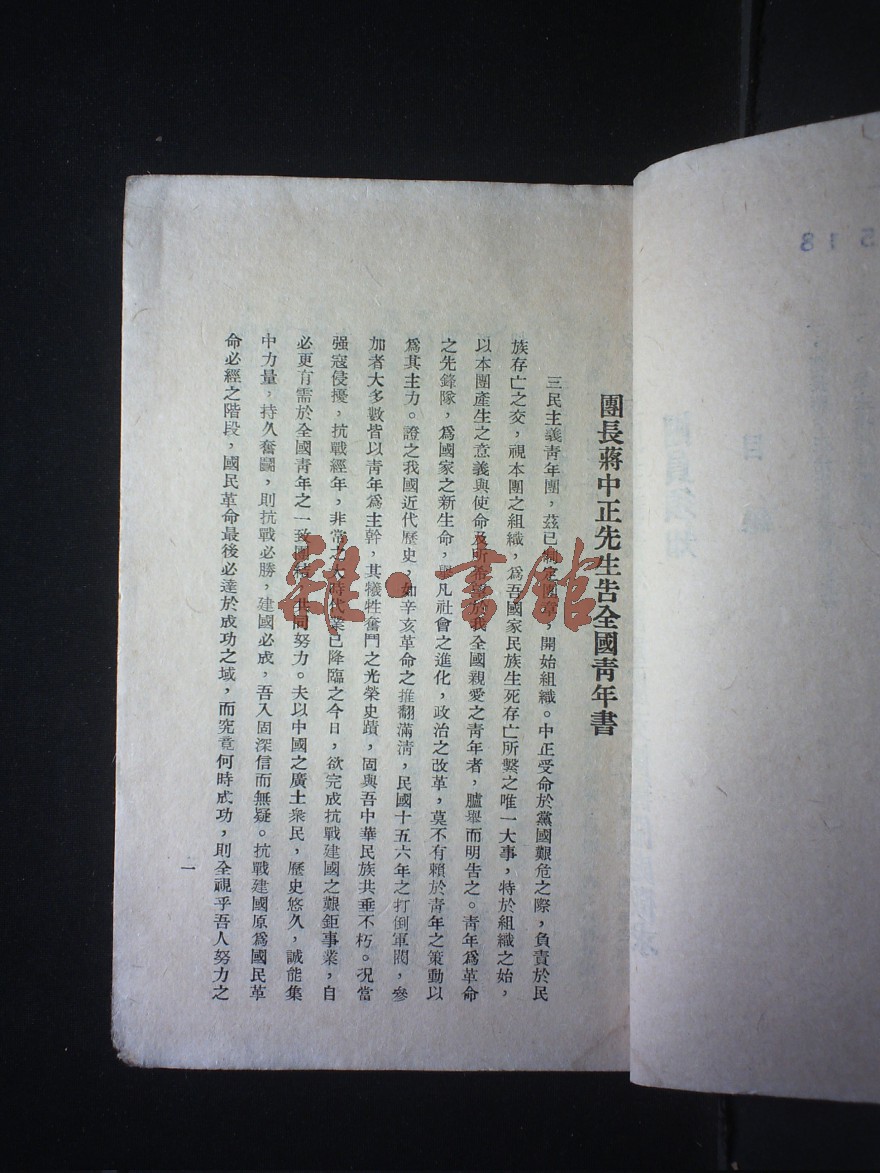 團長蔣中正先生告全國青年書
三民主義青年團，茲已制定團章，開始組織。中正受命於黨國艱危之際，負責於民
族存亡之交，視本團之組織，為吾國家民族生死存亡所繫之唯一大事，特於組織之始，
以本團產生之意義與使命及所希望於我全國親愛之青年者，臚舉而明告之。青年為革命
之先鋒隊，為國家之新生命，舉凡社會之進化，政治之改革，莫不有賴於青年之策動以
為其主力。證之我國近代歷史，如辛亥革命之推翻滿清，民國十五六年之打倒軍閥，參
加者大多數皆以青年為主幹，其犧牲奮鬥之光榮史蹟，固與吾中華民族共垂不朽。況當
强寇侵擾，抗戰經年，非常之大時代業已降臨之今日，欲完成抗戰建國之艱鉅事業，自
必更有需於全國青年之一致團結，共同努力。夫以中國之廣土衆民，歷史悠久，誠能集
中力量，持久奮鬭，則抗戰必勝，建國必成，吾人固深信而無疑。抗戰建國原為國民革
命必經之階段，國民革命最後必達於成功之域，而究竟何時成功，則全視乎吾人努力之
一
雜·書館
518
目錄